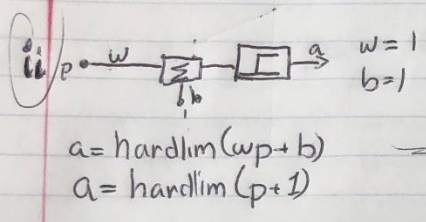 ii/ p w Σ a w = 1
b b = 1
1
a = hardlim(wp + b)
a = hardlim(p + 1)